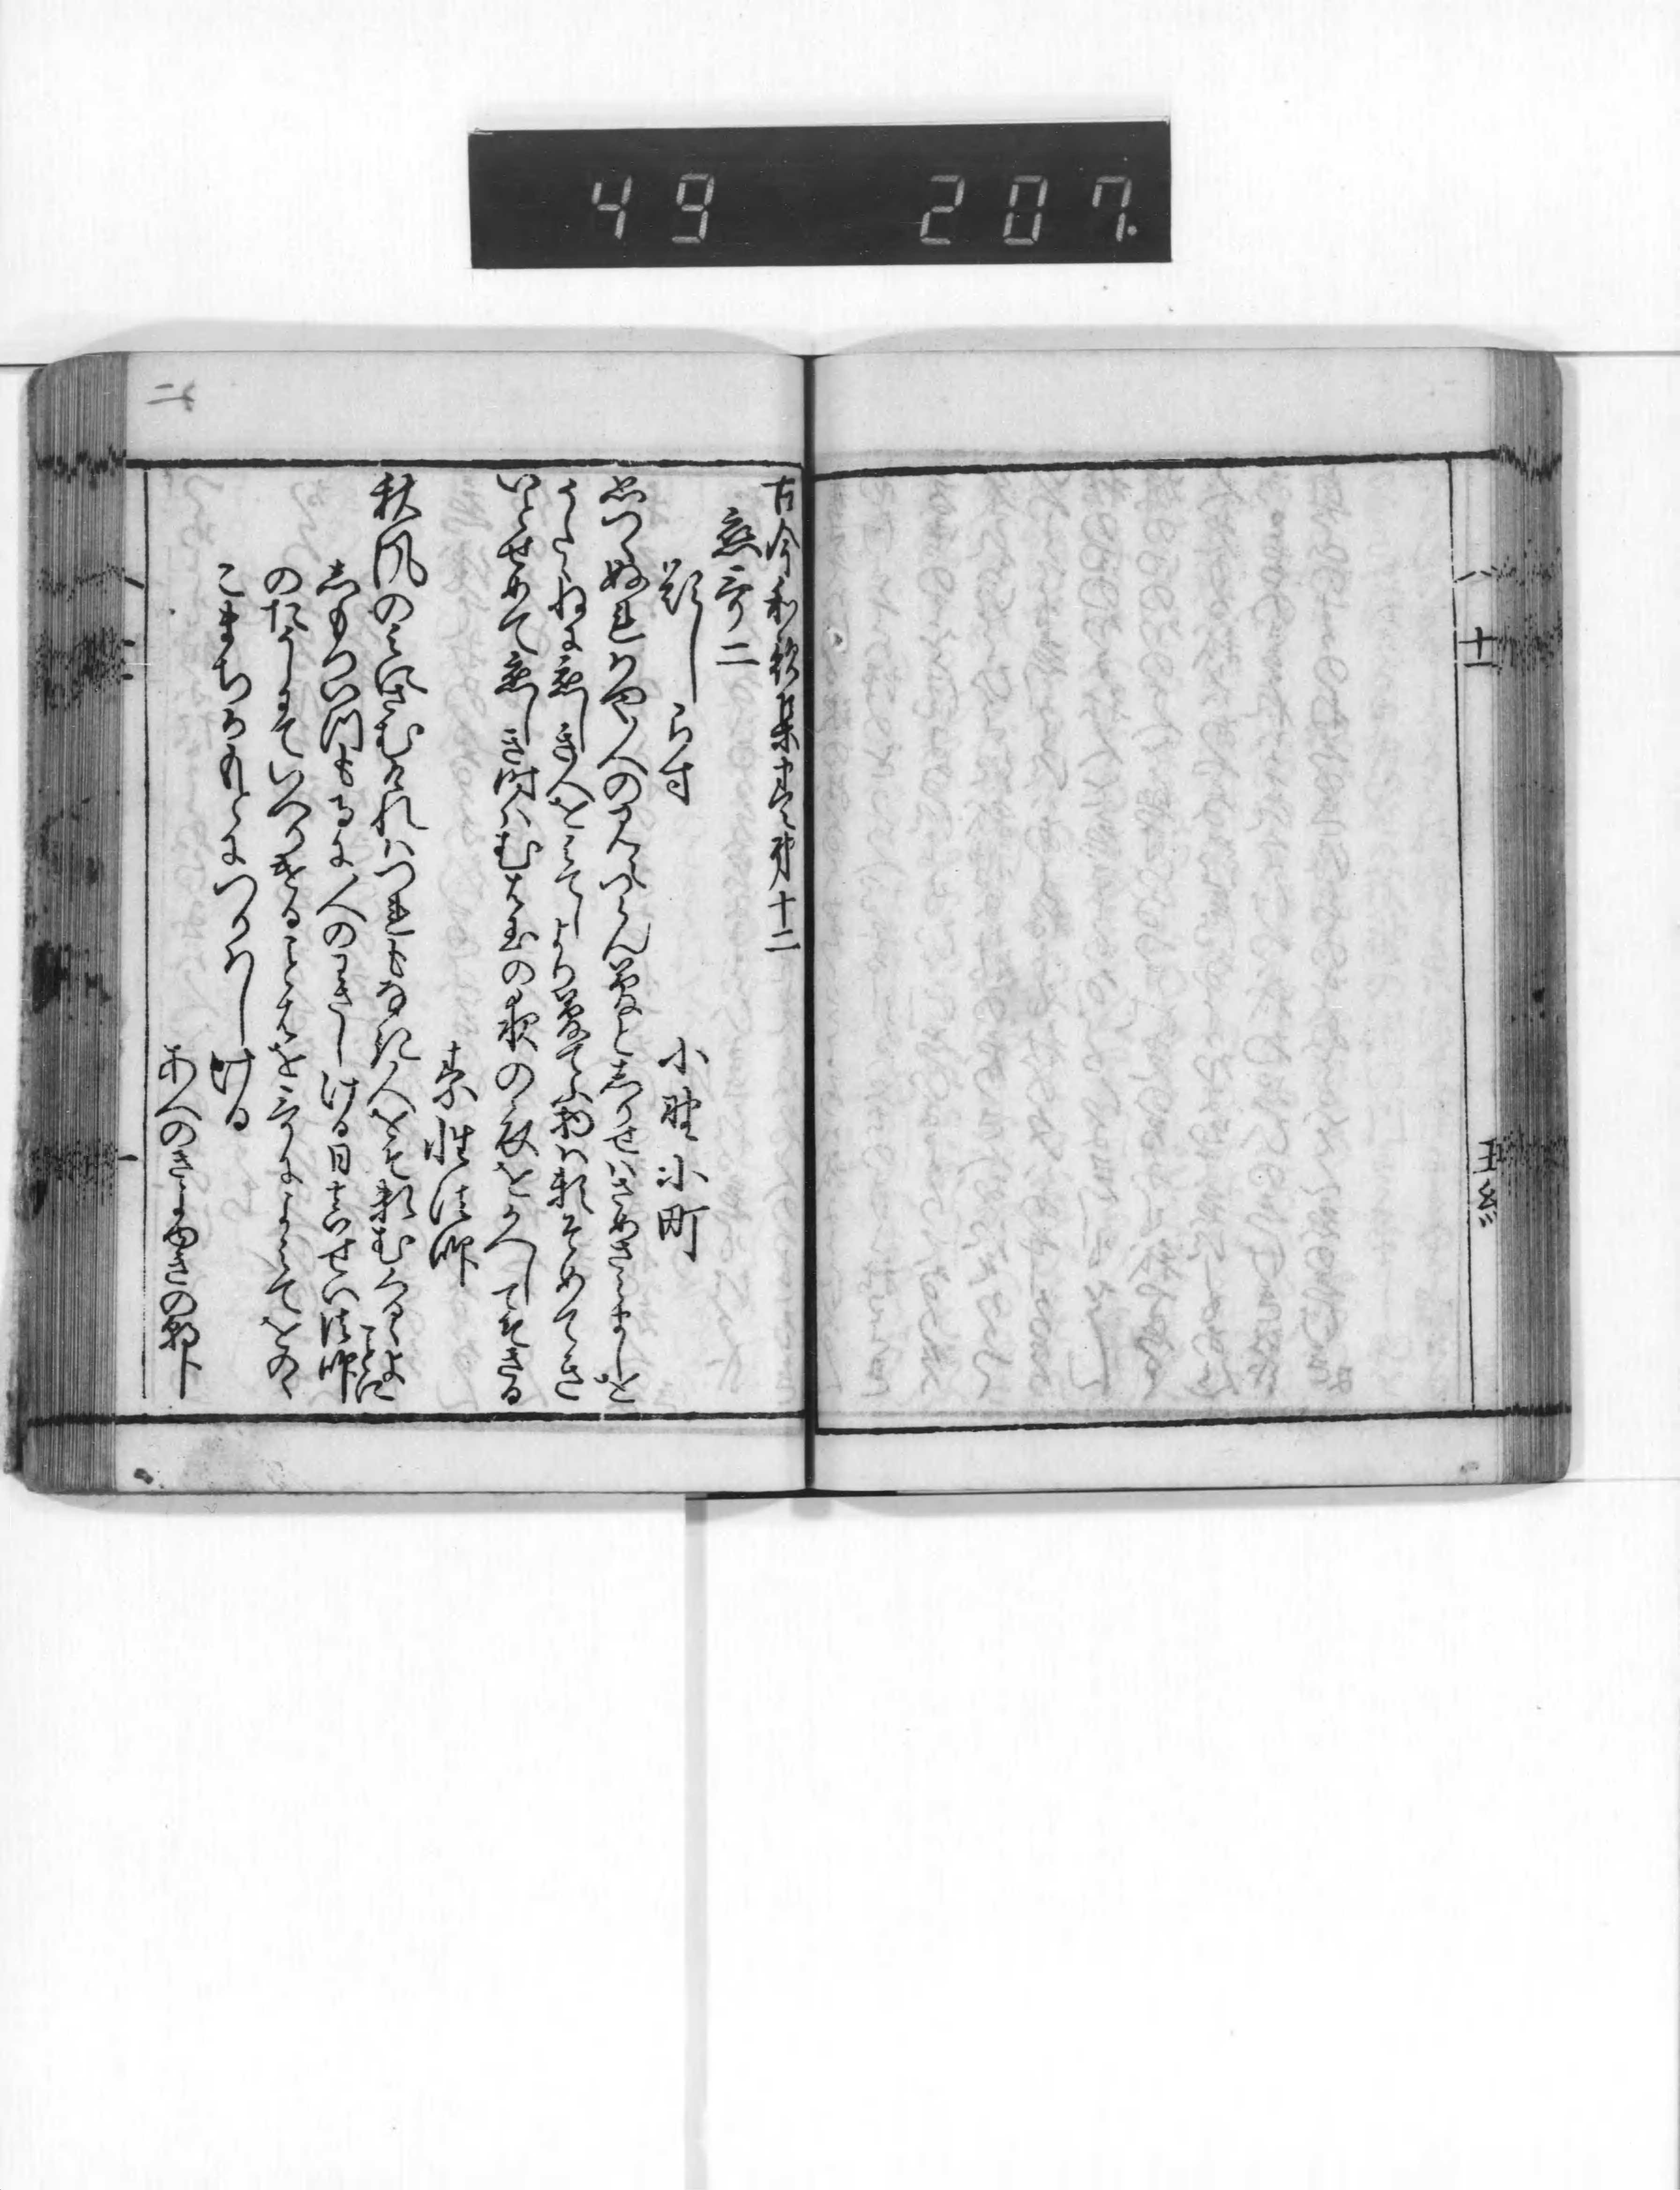 49 207.
古今和歌集巻第十二
恋哥二
題しらす
小野小町
思つゝぬれはや人のみえつらん夢としりせはさめさらましを
うたゝねに恋しき人をみてしより夢てふ物は頼そめてき
いとせめて恋しき時はむは玉の夜の衣をかへしてそきる
素性法師
秋風の身にさむけれはつれもなき人をそ頼むくるゝよことに
しもついつもてらに人のわさしける日真せい法師
のたうしにていへりけることはを哥によみてをのゝ
こまちかもとにつかはしける
あへのきよゆきの朝臣